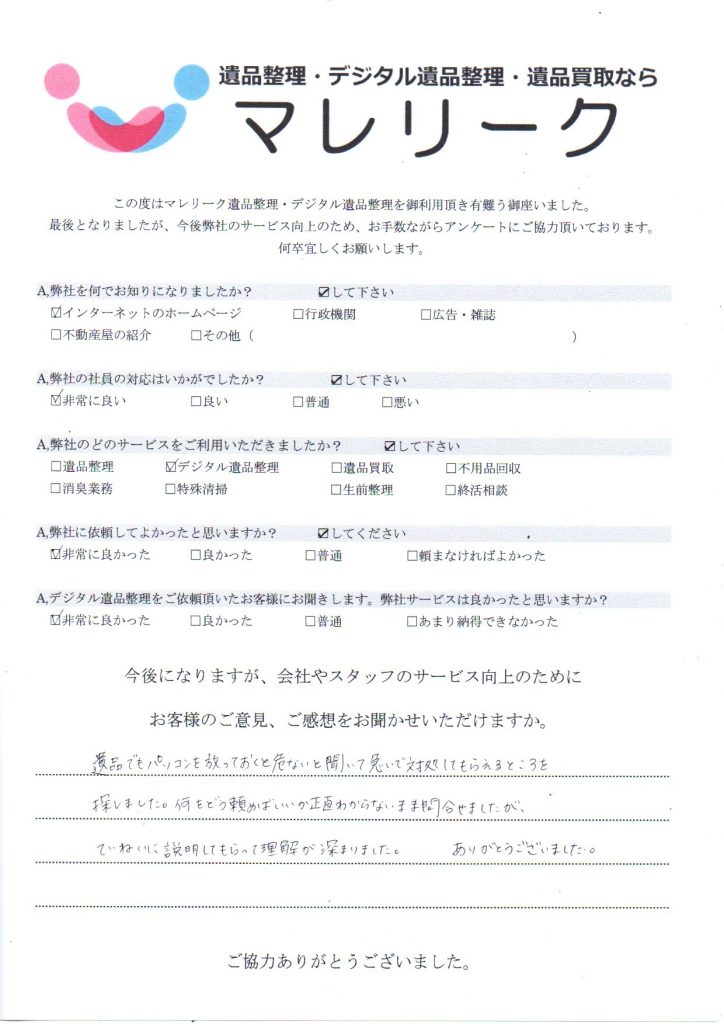 遺品整理・デジタル遺品整理・遺品買取なら
マレリーク
この度はマレリーク遺品整理・デジタル遺品整理を御利用頂き有難う御座いました。
最後となりましたが、今後弊社のサービス向上のため、お手数ながらアンケートにご協力頂いております。
何卒宜しくお願いします。
A,弊社を何でお知りになりましたか？ ☑して下さい
☑インターネットのホームページ □行政機関 □広告・雑誌
□不動産屋の紹介 □その他（ ）
A,弊社の社員の対応はいかがでしたか？ ☑して下さい
☑非常に良い □良い □普通 □悪い
A,弊社のどのサービスをご利用いただきましたか？ ☑して下さい
□遺品整理 ☑デジタル遺品整理 □遺品買取 □不用品回収
□消臭業務 □特殊清掃 □生前整理 □終活相談
A,弊社に依頼してよかったと思いますか？ ☑してください
☑非常に良かった □良かった □普通 □頼まなければよかった
A,デジタル遺品整理をご依頼頂いたお客様にお聞きします。弊社サービスは良かったと思いますか？
☑非常に良かった □良かった □普通 □あまり納得できなかった
今後になりますが、会社やスタッフのサービス向上のために
お客様のご意見、ご感想をお聞かせいただけますか。
遺品でもパソコンを放っておくと危ないと聞いて急いで対処してもらえるところを
探しました。何をどう頼めばいいか正直わからないまま問合せましたが、
ていねいに説明してもらって理解が深まりました。 ありがとうございました。
ご協力ありがとうございました。